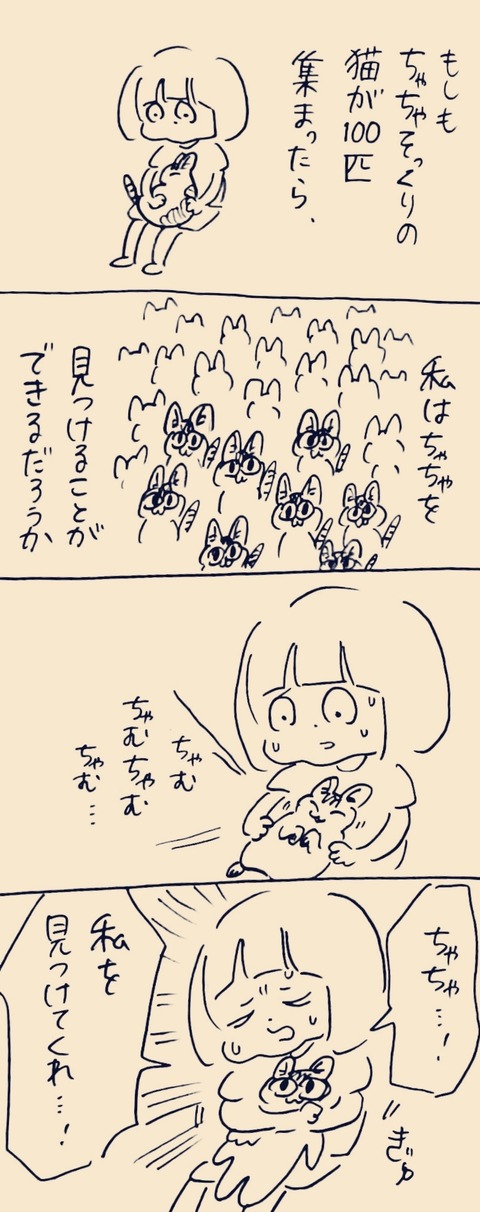 もしも
ちゃちゃそっくりの
猫が100匹
集まったら、
私はちゃちゃを
見つけることが
できるだろうか
ちゃむ
ちゃむちゃむ
ちゃむ…
ちゃちゃ…!
ぎゅ
私を
見つけてくれ…!